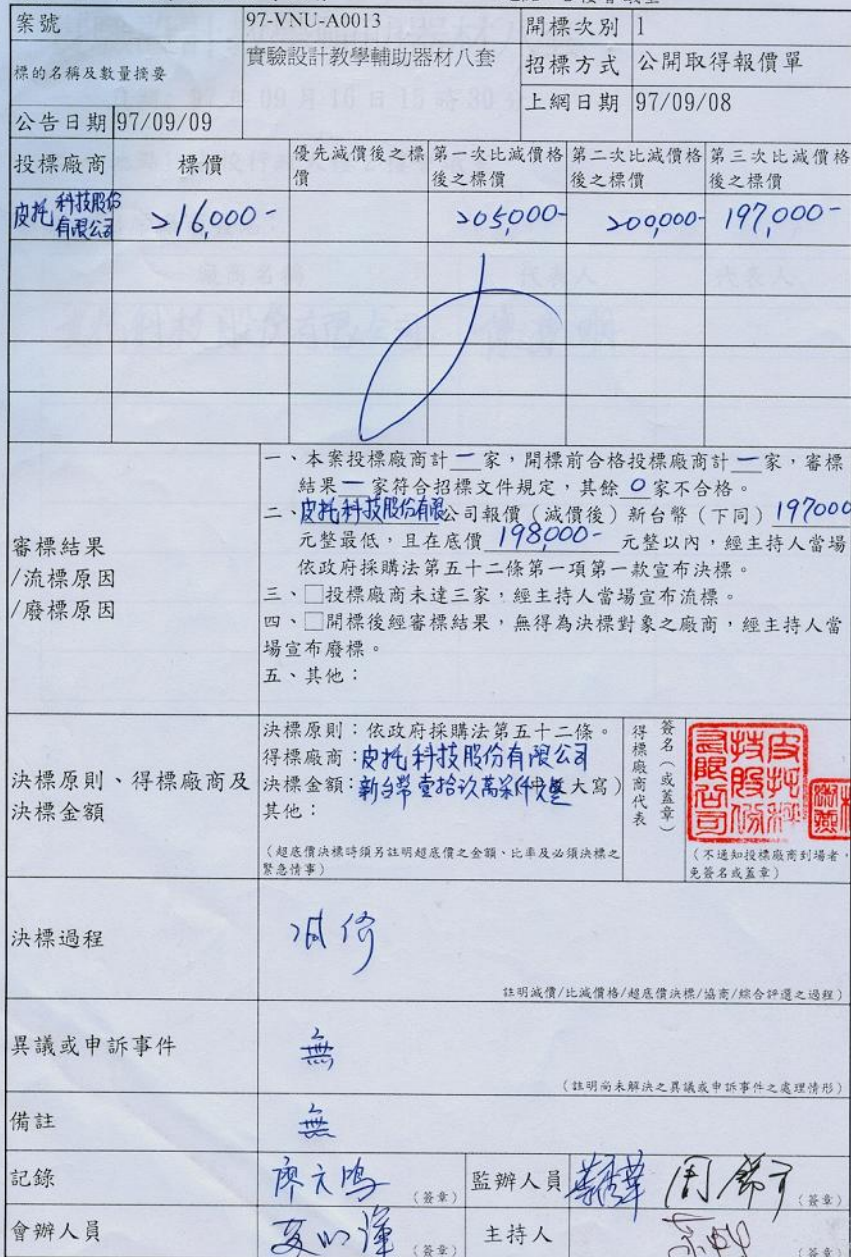 案號 97-VNU-A0013 開標次別 1
標的名稱及數量摘要 實驗設計教學輔助器材八套 招標方式 公開取得報價單
公告日期 97/09/09 上網日期 97/09/08
投標廠商 標價 優先減價後之標價 第一次比減價格後之標價 第二次比減價格後之標價 第三次比減價格後之標價
皮托科技股份有限公司 216,000- 205,000- 200,000- 197,000-
審標結果
/流標原因
/廢標原因
一、本案投標廠商計一家，開標前合格投標廠商計一家，審標
結果一家符合招標文件規定，其餘0家不合格。
二、皮托科技股份有限公司報價（減價後）新台幣（下同）197000
元整最低，且在底價198,000-元整以內，經主持人當場
依政府採購法第五十二條第一項第一款宣布決標。
三、□投標廠商未達三家，經主持人當場宣布流標。
四、□開標後經審標結果，無得為決標對象之廠商，經主持人當
場宣布廢標。
五、其他：
決標原則、得標廠商及
決標金額
決標原則：依政府採購法第五十二條。
得標廠商：皮托科技股份有限公司
決標金額：新台幣壹拾玖萬柒仟元整大寫）
其他：
（超底價決標時須另註明超底價之金額、比率及必須決標之
緊急情事）
得標廠商代表
簽名（或蓋章）
皮托科技股份有限公司
（不通知投標廠商到場者，
免簽名或蓋章）
決標過程 減價
註明減價/比減價格/超底價決標/協商/綜合評選之過程）
異議或申訴事件 無
（註明尚未解決之異議或申訴事件之處理情形）
備註 無
記錄 （簽章） 監辦人員 （簽章）
會辦人員 （簽章） 主持人 （簽章）